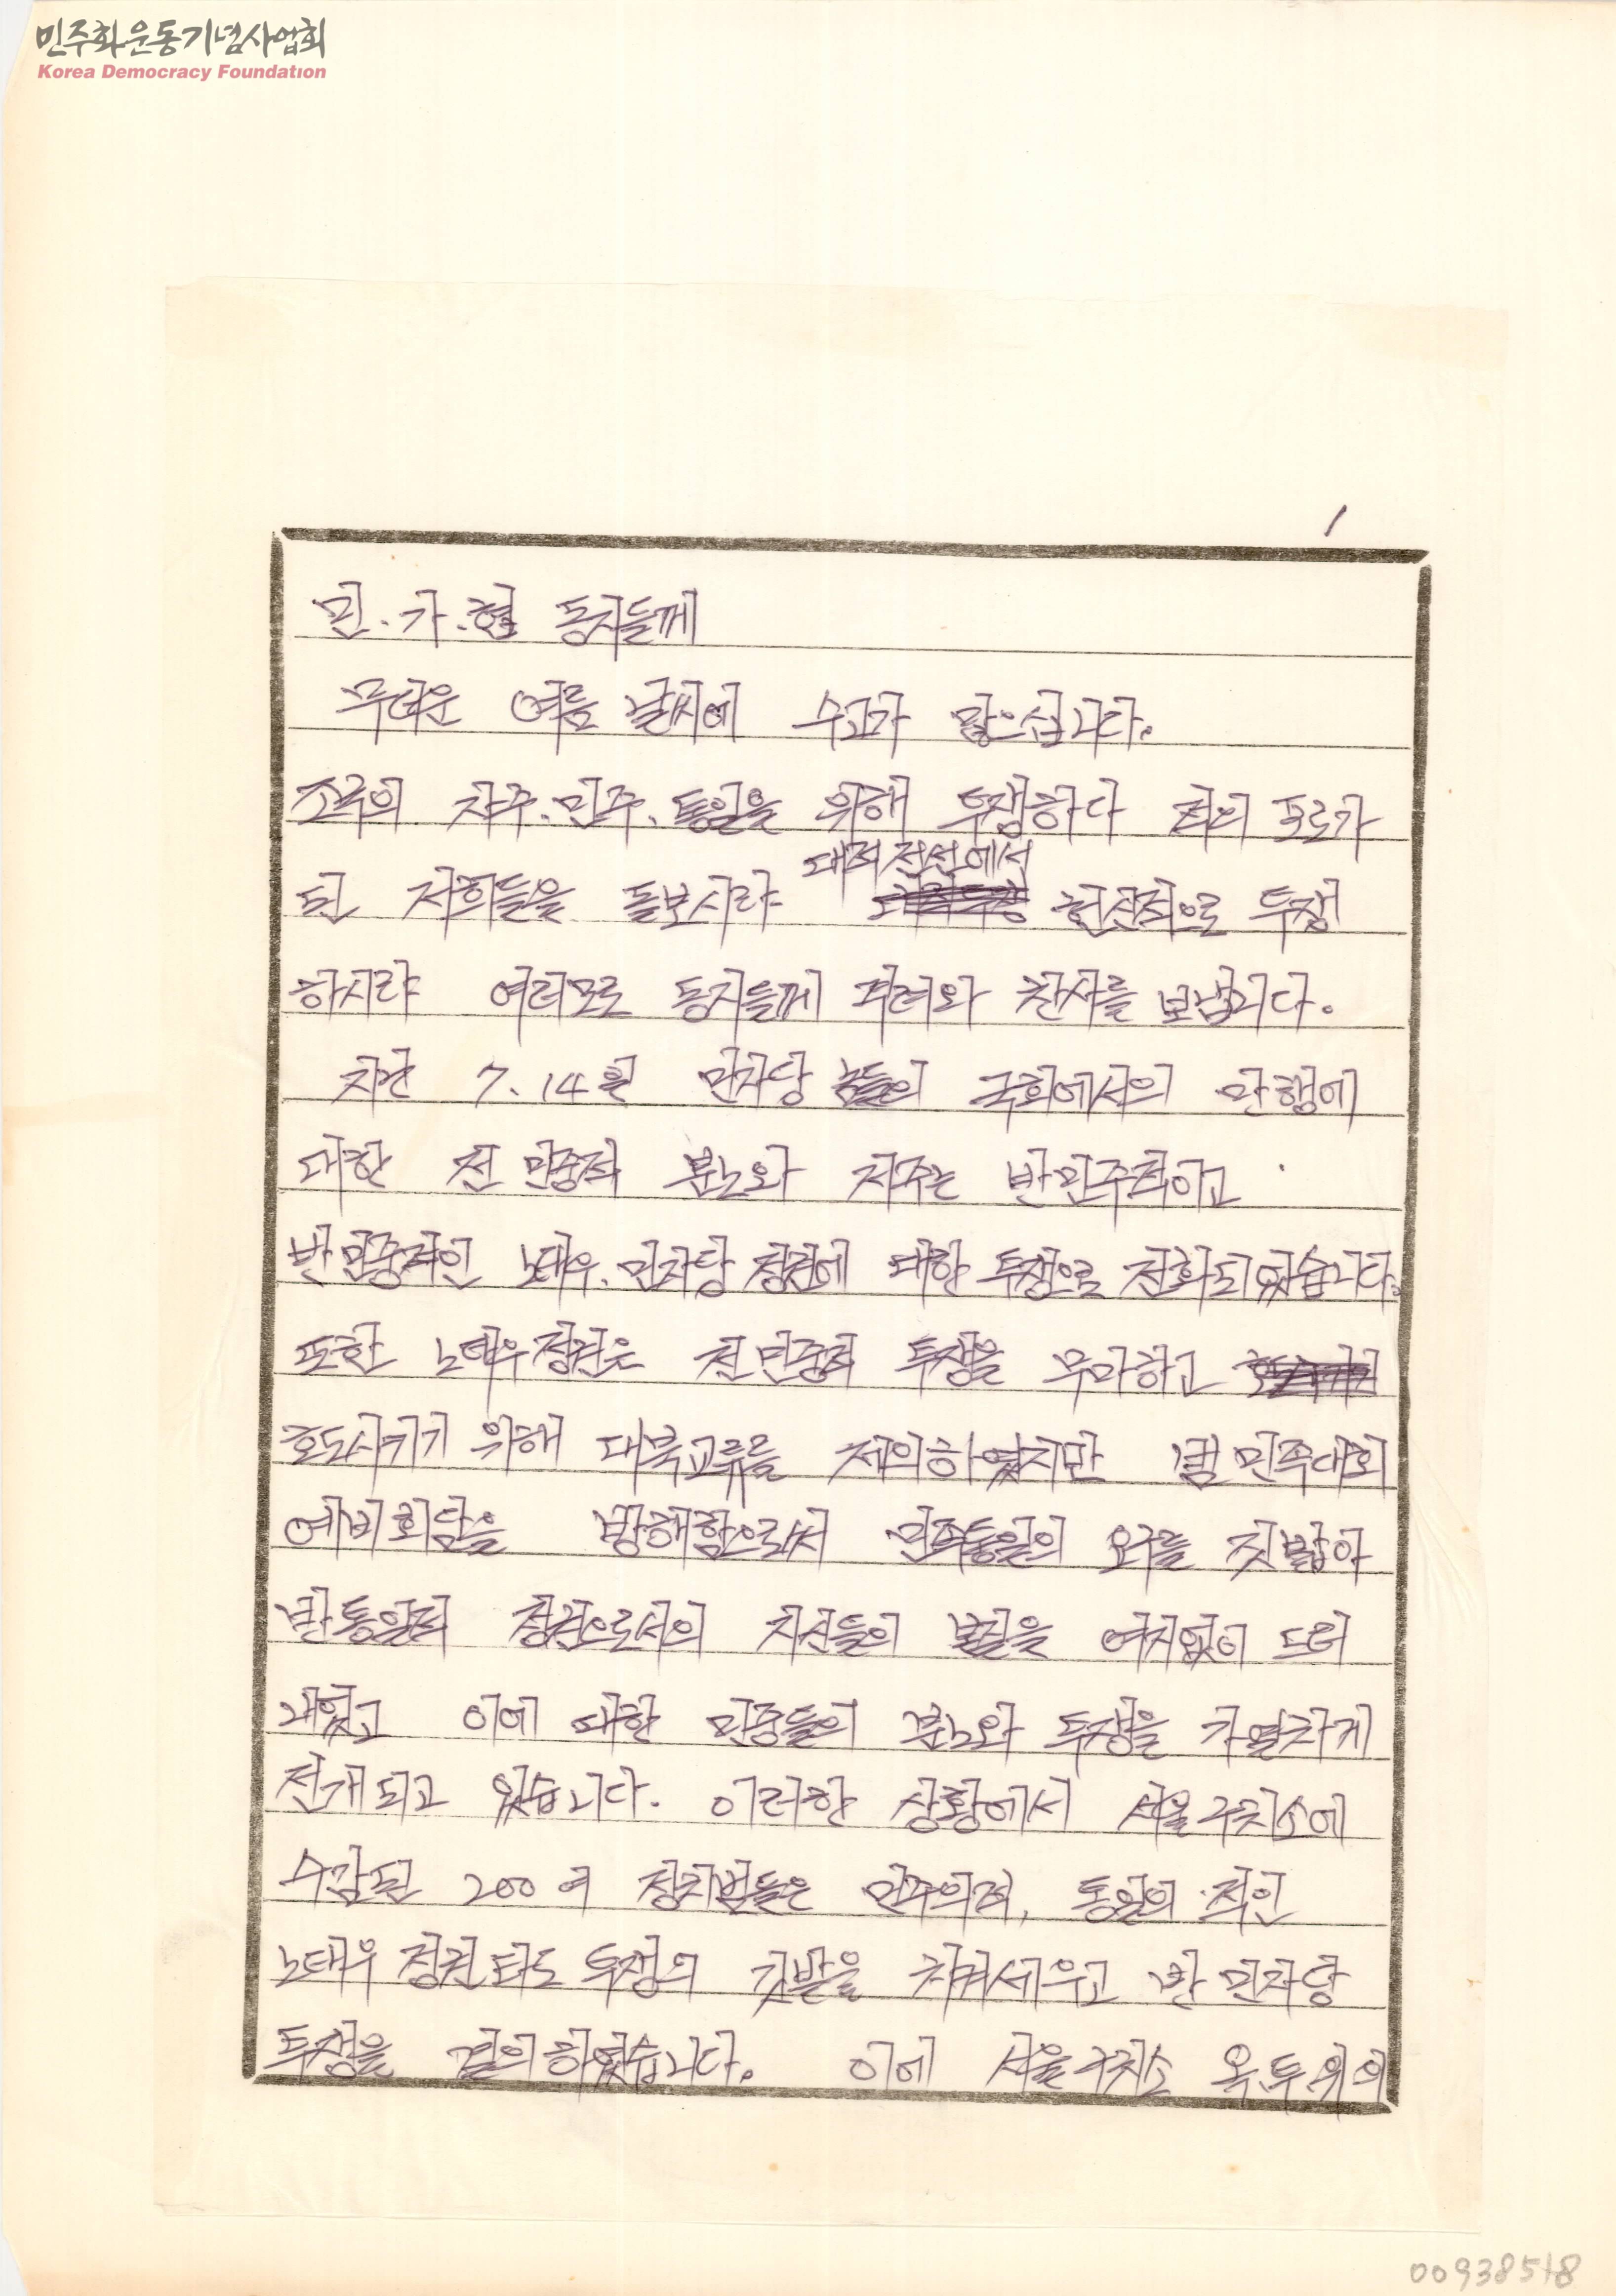 민주화운동기념사업회
Korea Democracy Foundation
1
민.가.협 동지들께
무더운 여름 날씨에 수고가 많으십니다.
조국의 자주.민주.통일을 위해 투쟁하다 적의 포로가
대적전선에서
된 저희들을 돌보시랴 헌신적으로 투쟁
하시랴 여러모로 동지들께 격려와 찬사를 보냅니다.
지난 7.14일 민자당 놈들의 국회에서의 만행에
대한 전민중적 분노와 저주는 반민주적이고
반민중적인 노태우.민자당 정권에 대한 투쟁으로 전화되었습니다.
또한 노태우정권은 전민중적 투쟁을 무마하고
호도시키기 위해 대북교류를 제의하였지만 범민족대회
예비회담을 방해함으로써 민족통일의 요구를 짓밟아
반통일적 정권으로서의 자신들의 본질을 여지없이 드러
내었고 이에 대한 민중들의 분노와 투쟁을 가열차게
전개되고 있습니다. 이러한 상황에서 서울구치소에
수감된 200여 정치범들은 민주의적, 통일의 적인
노태우 정권 타도 투쟁의 깃발을 치켜세우고 반 민자당
투쟁을 결의하였습니다. 이에 서울구치소 옥.투.위의
00938518